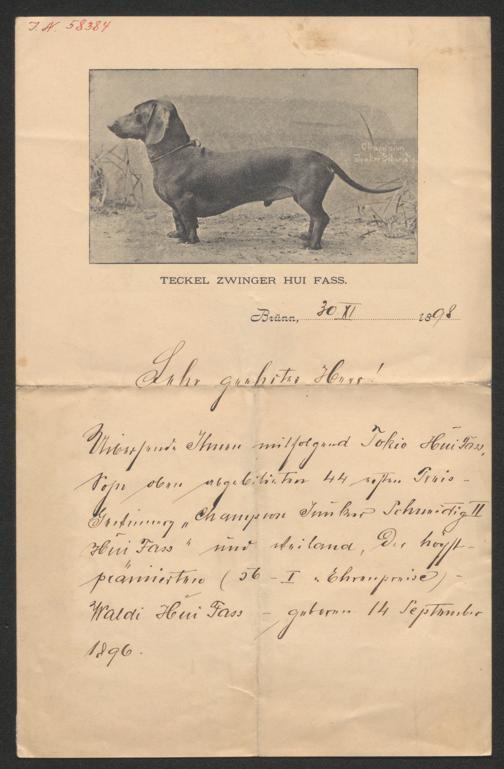 J. N 58384
Champion
TECKEL ZWINGER HUI FASS.
Brünn, 30 XI 1898
Sehr geehrter Herr!
Übersende Ihnen mitfolgend Tokio Hui Fass,
Sohn oben abgebildeten 44 ersten Preis-
Gewinners „Champion Junker Schneidig II
Hui Fass" und weiland, der höchst-
prämiierten (56 - I u. Ehrenpreise) -
Waldi Hui Fass - geboren 14 September
1896.